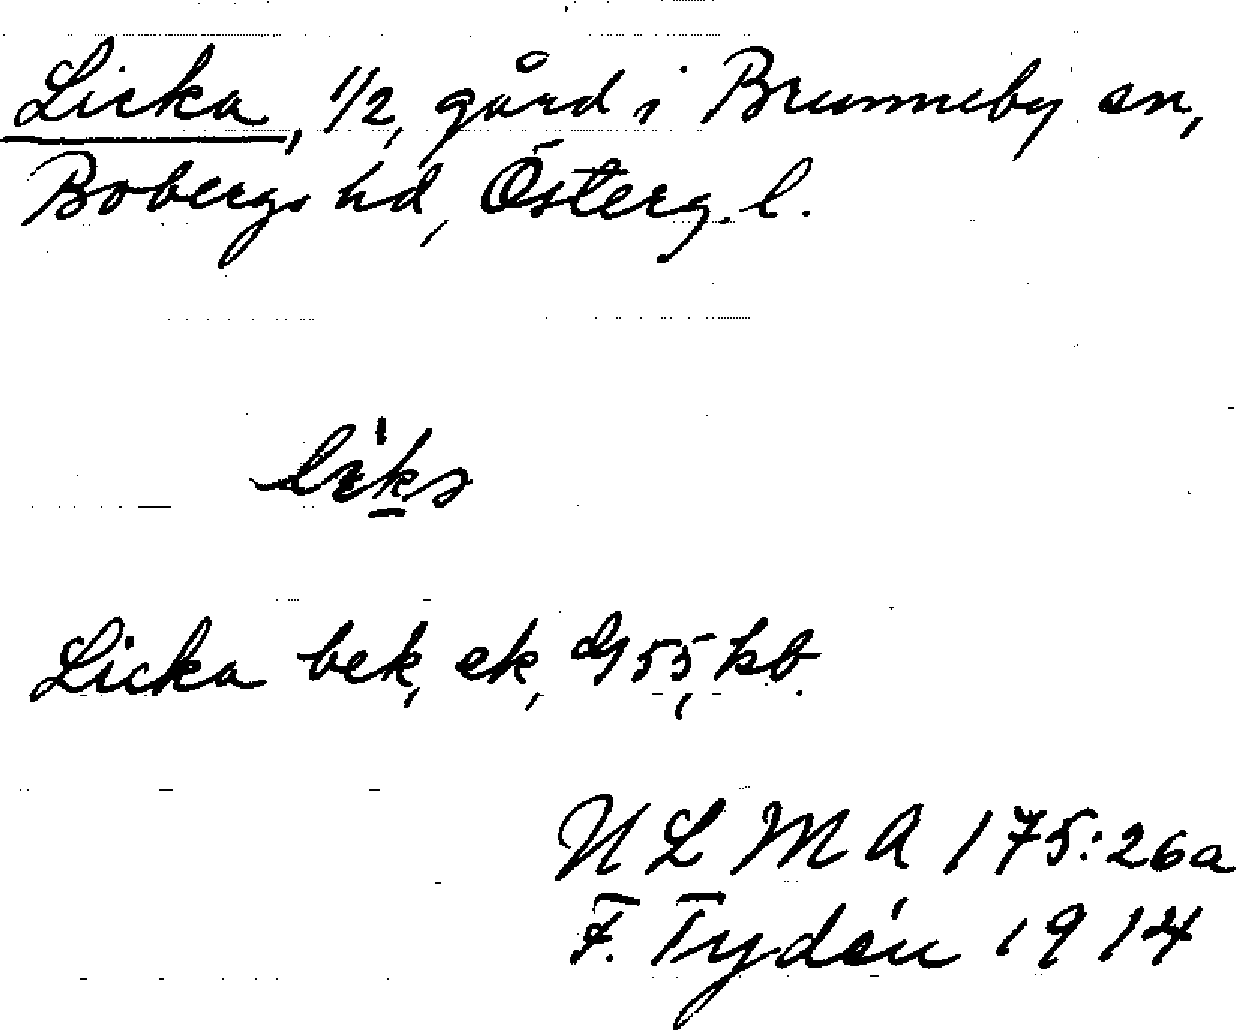 Licka, 1/2, gård i Brunneby sn,
Bobergs hd, Österg. l.
Licka bek, ek, G 55, kb.
ULMA 175:26a
F. Tydén 1914